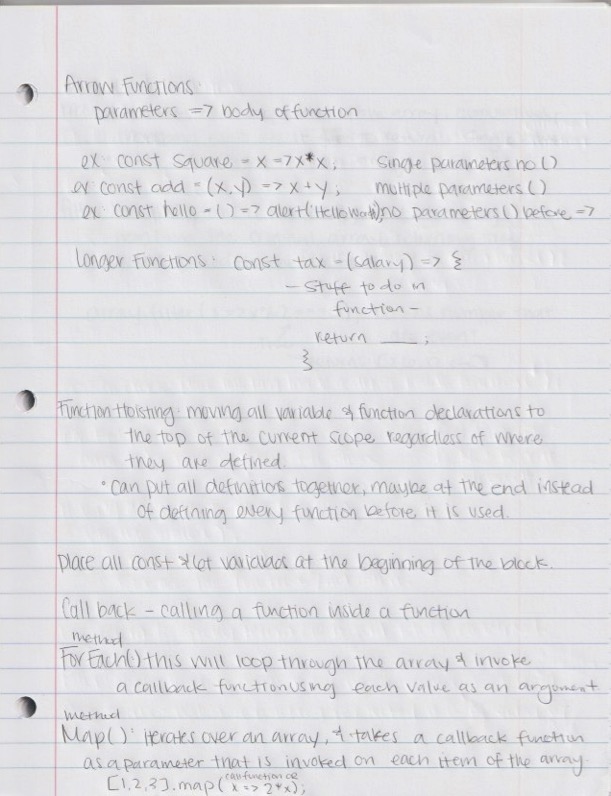 Arrow Functions:
parameters => body of function
ex: const square = x => x*x; Singe parameters no ()
ex const add = (x,y) => x+y; multiple parameters ()
ex: const hello = () => alert('Hello World') no parameters () before =>
Longer Functions: Const tax = (salary) => {
- Stuff to do in
function -
return ___;
}
Function Hoisting: moving all variable & function declarations to
the top of the current scope regardless of where
they are defined.
• can put all definitions together, maybe at the end instead
of defining every function before it is used.
place all const & let variables at the beginning of the block.
Call back - calling a function inside a function
method
ForEach() this will loop through the array & invoke
a callback function using each value as an argument
method
Map(): iterates over an array, & takes a callback function
as a parameter that is invoked on each item of the array.
can function or
[1,2,3].map( x => 2*x);